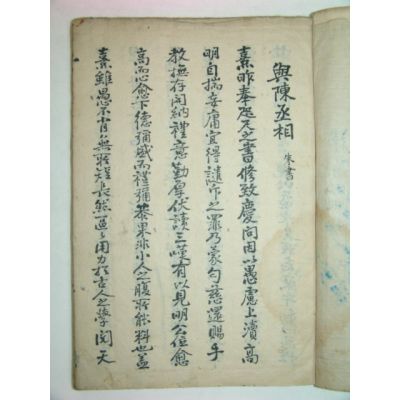 與陳丞相
朱書
熹昨奉咫尺之書修致慶問因以愚慮上瀆高
明自揣妄庸宜得譴斥之罪乃蒙勻慈還賜手
教撫存開納禮意勤厚伏讀三嘆有以見明公位愈
高而心愈下德彌盛而禮彌恭果非小人之腹所能料也盖
熹雖愚不肖無所短長然區々用力於古人之學聞天